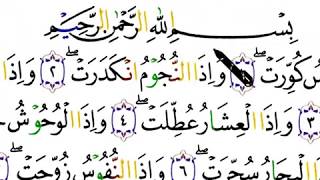 بِسْمِ اللَّهِ الرَّحْمٰنِ الرَّحِيْمِ
كُوِّرَتْ ۖ وَاِذَا النُّجُوْمُ انْكَدَرَتْ ۖ ٢ وَاِذَا
٣ وَاِذَا الْعِشَارُ عُطِّلَتْ ۖ ٤ وَاِذَا الْوُحُوْشُ
الْبِحَارُ سُجِّرَتْ ۖ ٦ وَاِذَا النُّفُوْسُ زُوِّجَتْ ۖ